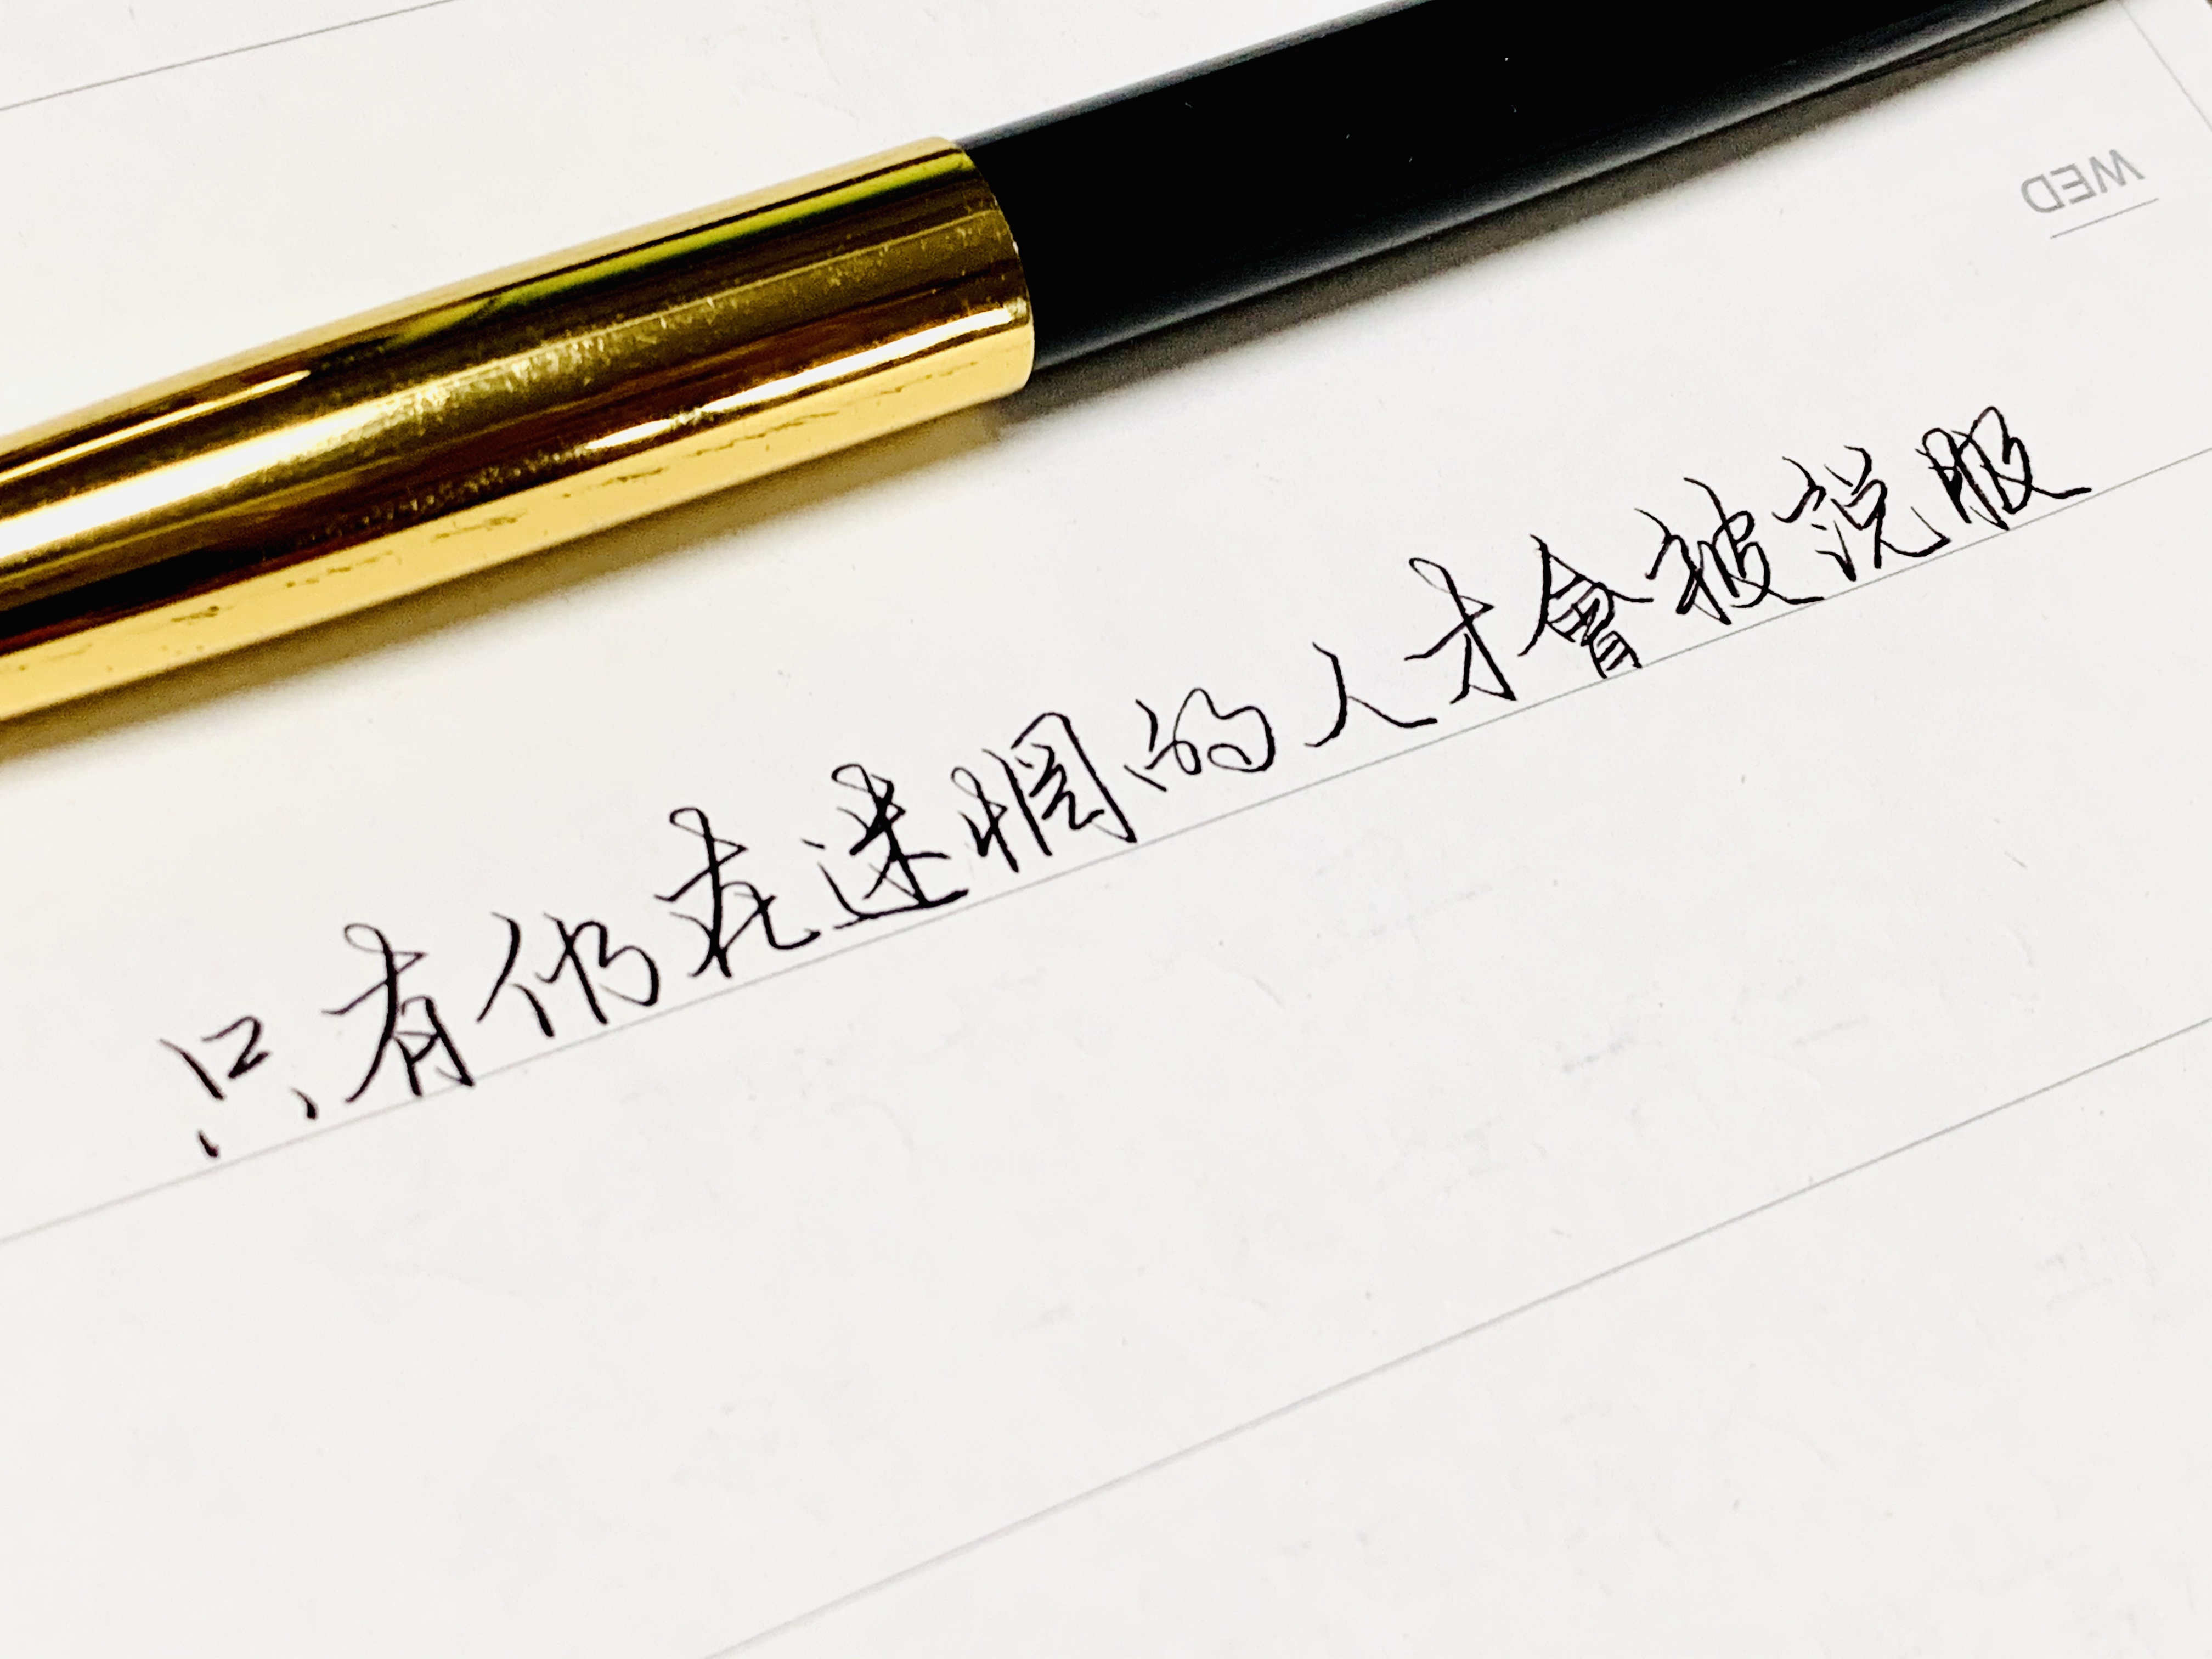 WED
只有仍在迷惘的人才會被説服